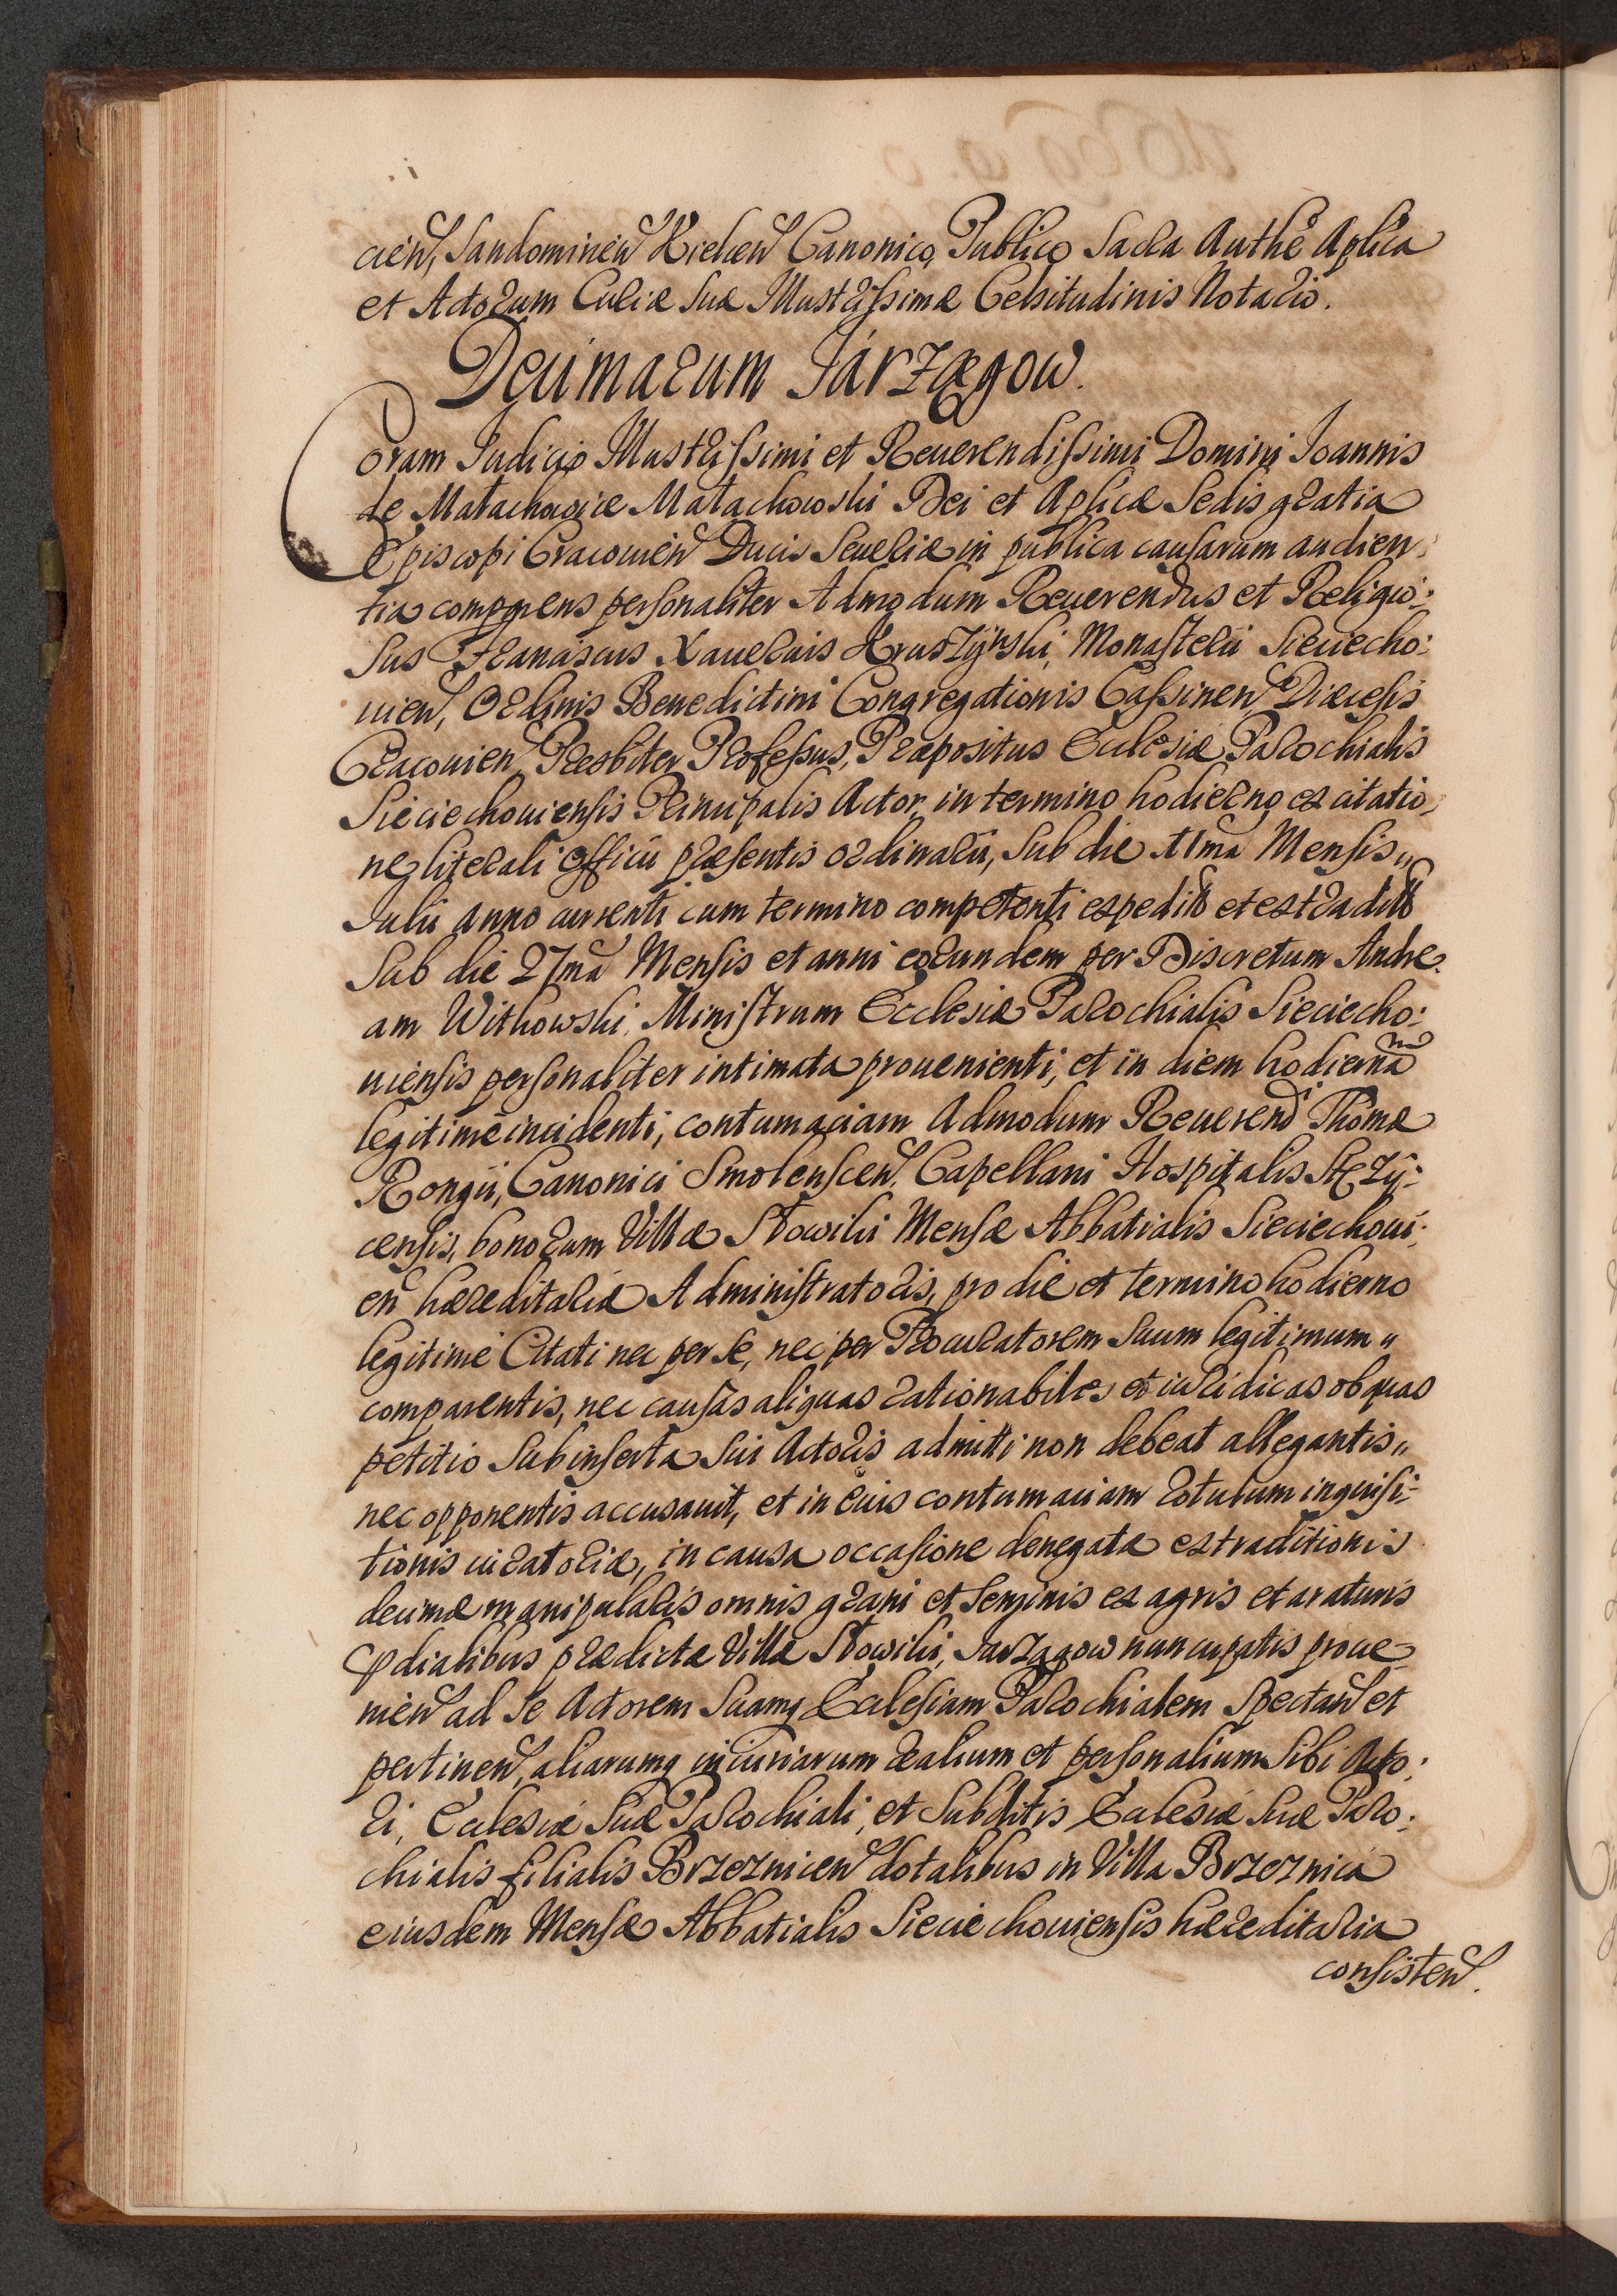 cien, Sandomirien Kielcen Canonico, Publico Sacra Authe Aplica
et Actorum Curiæ Suæ Illustrissimæ Celsitudinis Notario.
Decimarum Jarzægow.
Coram Iudicio Illustrissimi et Reuerendissimi Domini Ioannis
de Małachowice Małachowski Dei et Aplicæ Sedis gratia
Episcopi Cracouien Ducis Seueriæ in publica causarum audien,
tia comparens personaliter Admodum Reuerendus et Religio:
sus Franciscus Xauerius Kruszÿnski, Monasterii Sieciecho:
uien, Ordinis Benedictini Congregationis Cassinen Diæcesis
Cracouien Presbiter Professus, Præpositus Ecclesiæ Parochialis
Sieciechouiensis Principalis Actor, in termino hodierno ex citatio,
ne literali Officii præsentis ordinarii, sub die 11ma Mensis „
Iulii anno currenti cum termino competenti expedita et extradita
sub die 27ma Mensis et anni eorundem per Discretum Andre:
am Witkowski, Ministrum Ecclesiæ Parochialis Sieciecho:
uiensis personaliter intimata prouenienti, et in diem hodierna
legitime incidenti, contumaciam Admodum Reuerend Thomæ
Rongii, Canonici Smolenscen, Capellani Hospitalis Stęzÿ:
censis, bonorum Villæ Słowiki Mensæ Abbatialis Sieciechoui:
en hæreditariæ Administratoris, pro die et termino hodierno
legitime Citati nec per se, nec per Procuratorem suum legitimum „
comparentis, nec causas aliquas rationabiles et iuridicas ob quas
petitio subinserta sui Actoris admitti non debeat allegantis „
nec opponentis accusauit, et in euis contumaciam rotulum inquisi:
tionis iuratoriæ, in causa occasione denegatæ extraditionis
decimæ manipularis omnis grani et seminis ex agris et araturis
prædialibus prædictæ Villæ Słowiki, Jarzągow nuncupatis proue:
nien ad se Actorem suamq Ecclesiam Parochialem spectan et
pertinen, aliarumq iniuriarum realium et personalium sibi Acto:
ri, Ecclesiæ suæ Parochiali, et subditis Ecclesiæ suæ Paro:
chialis filialis Brzeznicen dotalibus in Villa Brzeznica
eiusdem Mensæ Abbatialis Sieciechouiensis hæreditaria
consisten.